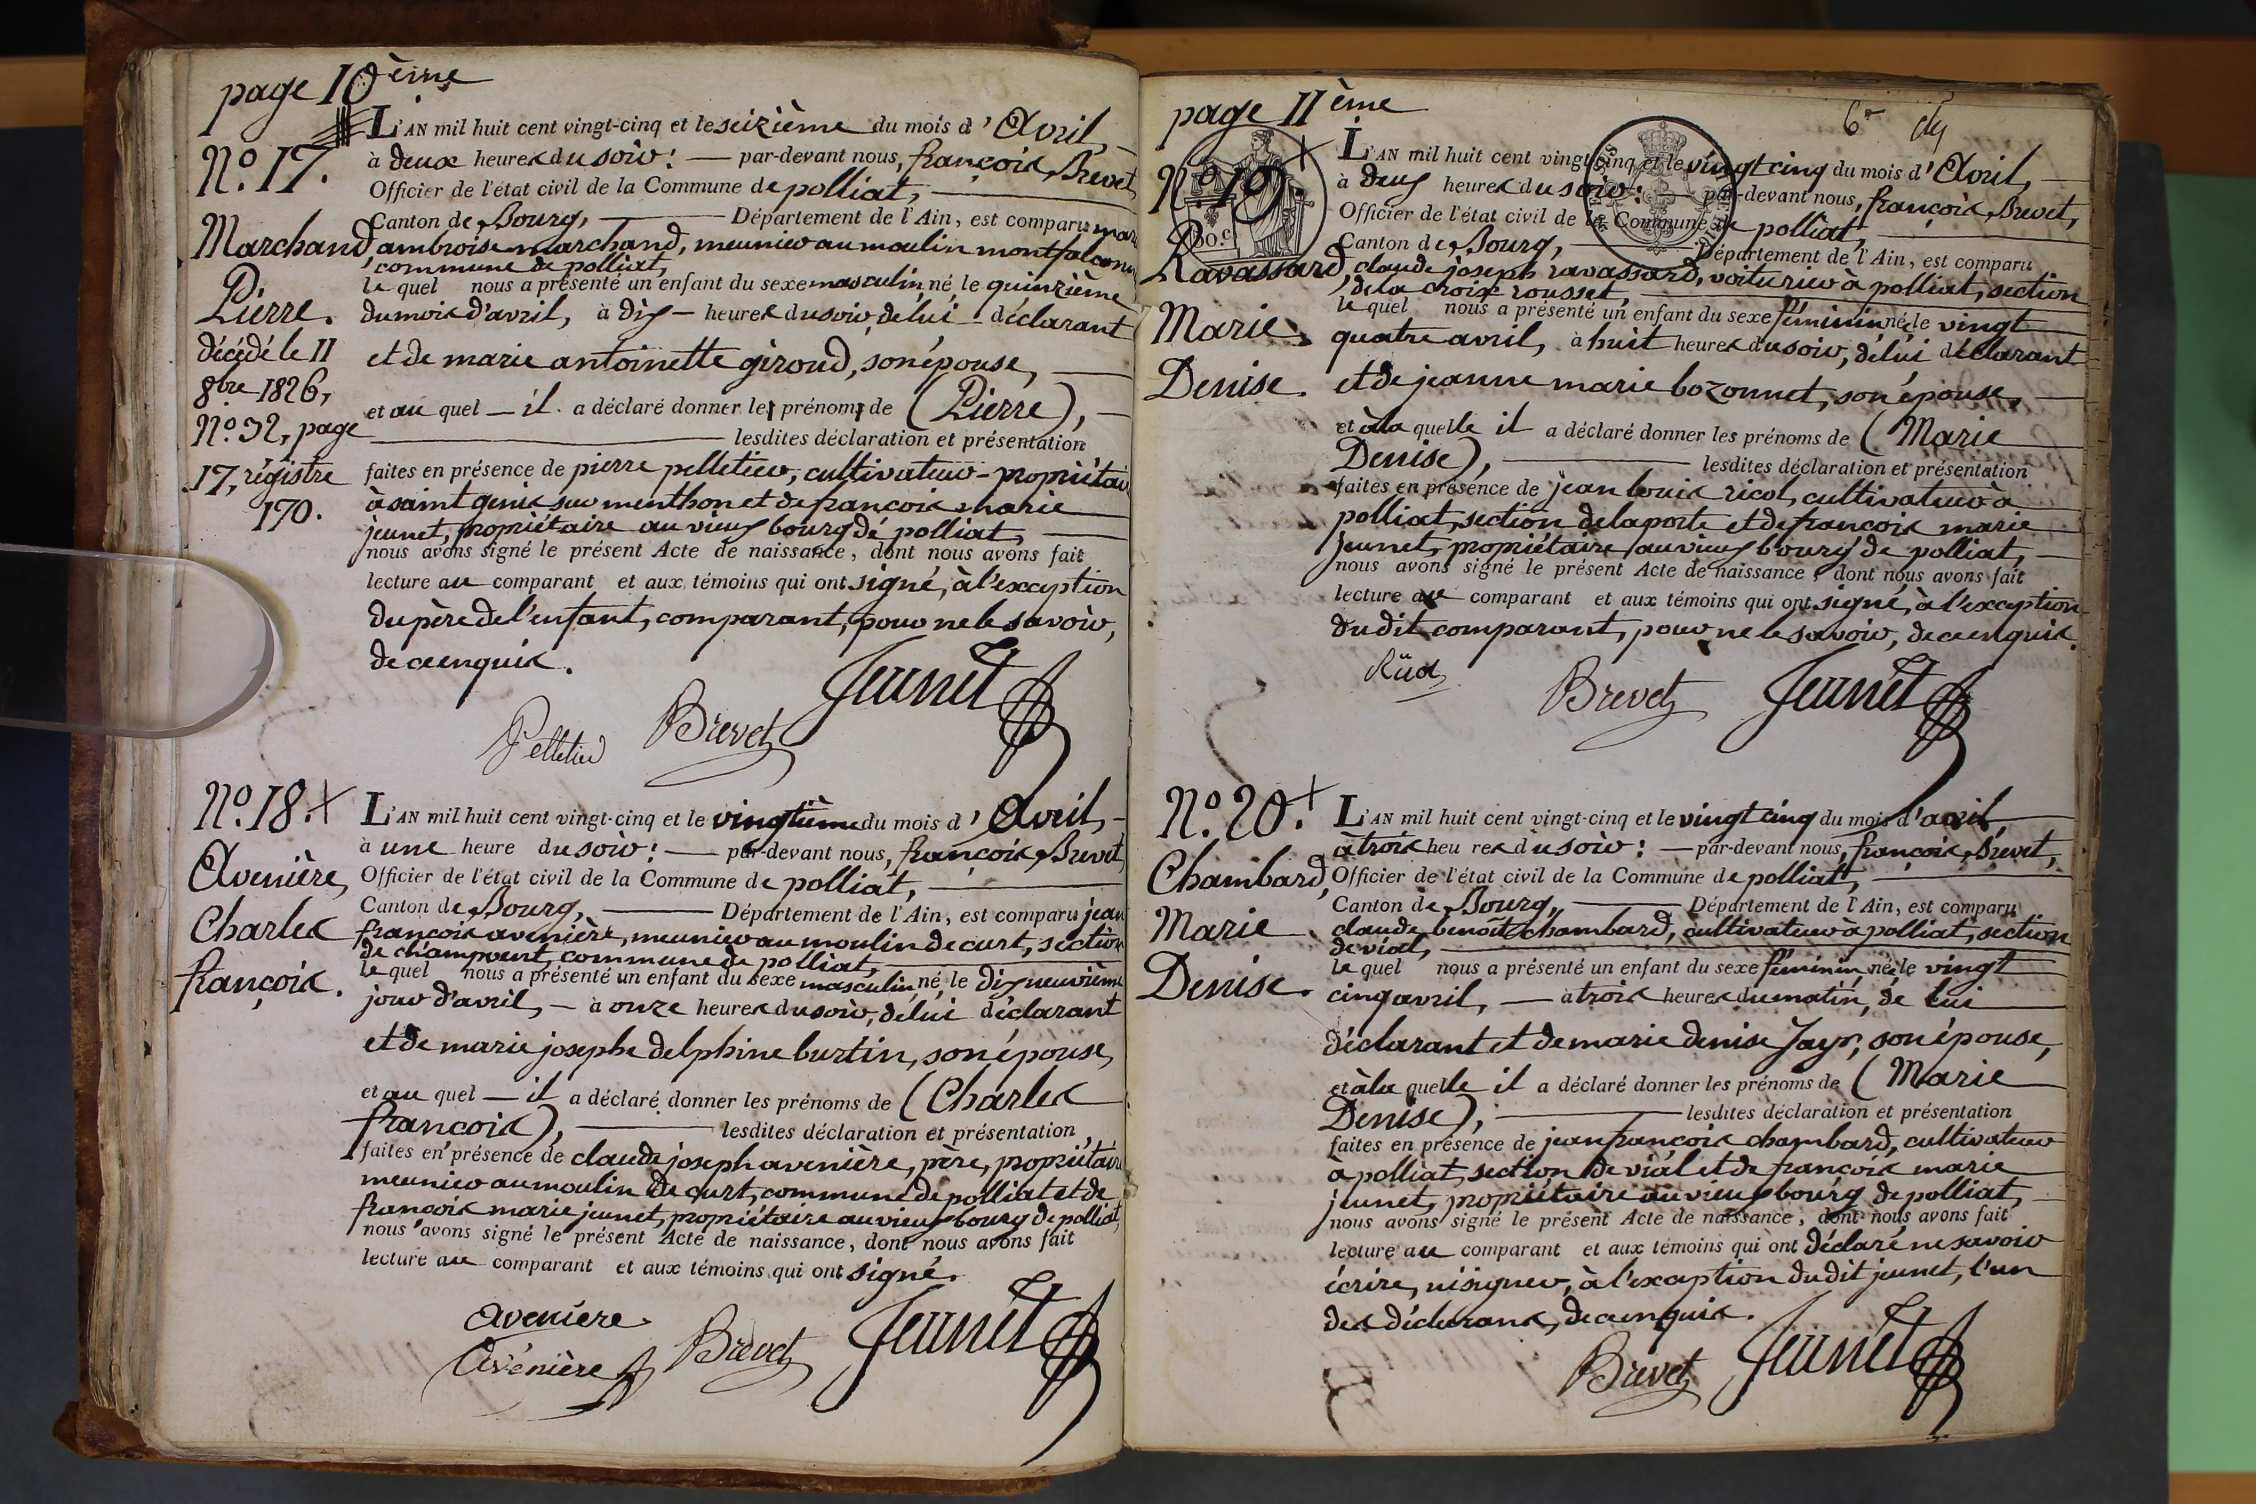 page 10ème
N.º 17.
Marchand,
Pierre.
décédé le 11
8bre 1826,
N.º 32, page
17, régistre
170.
L'AN mil huit cent vingt-cinq et le seizième du mois d'Avril,
à deux heures du soir: par-devant nous, françois Brevet,
Officier de l'état civil de la Commune de polliat,
Canton de Bourg, Département de l'Ain, est comparu
ambroise marchand, meunier au moulin montfalcon
commune de polliat,
le quel nous a présenté un enfant du sexe masculin né le quinzième
du mois d'avril, à dix heures du soir, de lui déclarant
et de marie antoinette giroud, son épouse,
et au quel il a déclaré donner les prénoms de (Pierre),
lesdites déclaration et présentation
faites en présence de pierre pelletier, cultivateur-propriétaire
à saint genis sur menthon et de françois marie
jeunet, propriétaire au vieux bourg de polliat,
nous avons signé le présent Acte de naissance, dont nous avons fait
lecture au comparant et aux témoins qui ont signé, à l'exception
du père de l'enfant, comparant, pour ne le savoir,
de ce enquis.
Pelletier Brevet Jeunet
N.º 18.
Avenière,
Charles
françois.
L'AN mil huit cent vingt-cinq et le vingtième du mois d'Avril,
à une heure du soir: par-devant nous, françois Brevet,
Officier de l'état civil de la Commune de polliat,
Canton de Bourg, Département de l'Ain, est comparu jean
françois avenière, meunier au moulin de curt, section
de champvent, commune de polliat,
le quel nous a présenté un enfant du sexe masculin né le dix neuvième
jour d'avril, à onze heures du soir, de lui déclarant
et de marie josephe delphine burtin, son épouse,
et au quel il a déclaré donner les prénoms de (Charles
françois), lesdites déclaration et présentation
faites en présence de claude joseph avenière, père, propriétaire
meunier au moulin de curt, commune de polliat et de
françois marie jeunet, propriétaire au vieux bourg de polliat,
nous avons signé le présent Acte de naissance, dont nous avons fait
lecture au comparant et aux témoins qui ont signé.
avenière
Avénière Brevet Jeunet
page 11ème
N.º 19.
Ravassard,
Marie
Denise.
L'AN mil huit cent vingt-cinq et le vingt cinq du mois d'Avril,
à deux heures du soir: par-devant nous, françois Brevet,
Officier de l'état civil de la Commune de polliat,
Canton de Bourg, Département de l'Ain, est comparu
claude joseph ravassard, voiturier à polliat, section
de la croix rousset,
le quel nous a présenté un enfant du sexe féminin née le vingt
quatre avril, à huit heures du soir, de lui déclarant
et de jeanne marie bozonnet, son épouse,
et à la quelle il a déclaré donner les prénoms de (Marie
Denise), lesdites déclaration et présentation
faites en présence de jean louis ricol, cultivateur à
polliat, section de la porte et de françois marie
jeunet, propriétaire au vieux bourg de polliat,
nous avons signé le présent Acte de naissance, dont nous avons fait
lecture au comparant et aux témoins qui ont signé, à l'exception
du dit comparant, pour ne le savoir, de ce enquis.
Brevet Jeunet
N.º 20.
Chambard,
Marie
Denise.
L'AN mil huit cent vingt-cinq et le vingt cinq du mois d'avril,
à trois heures du soir: par-devant nous, françois Brevet,
Officier de l'état civil de la Commune de polliat,
Canton de Bourg, Département de l'Ain, est comparu
claude benoît chambard, cultivateur à polliat, section
de vial,
le quel nous a présenté un enfant du sexe féminin née le vingt
cinq avril, à trois heures du matin, de lui
déclarant et de marie denise Jayr, son épouse,
et à la quelle il a déclaré donner les prénoms de (Marie
Denise), lesdites déclaration et présentation
faites en présence de jean françois chambard, cultivateur
a polliat, section de vial et de françois marie
jeunet, propriétaire au vieux bourg de polliat,
nous avons signé le présent Acte de naissance, dont nous avons fait
lecture au comparant et aux témoins qui ont déclaré ne savoir
écrire, ni signer, à l'exception du dit jeunet, l'un
des déclarans, de ce enquis.
Brevet Jeunet